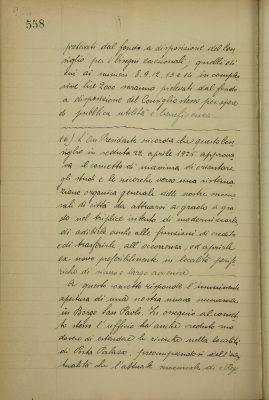 558
prelevati dal fondo a disposizione del Con
siglio per i bisogni eccezionali; quelle di
cui ai numeri 8. 9. 12. 13 e 14 in comples
sive lire 2000 saranno prelevati dal fondo
a disposizione del Consiglio stesso per opere
di pubblica utilità e beneficenza.
16) L'On Presidente ricorda che questo Con
siglio in seduta 22 aprile 1925 approva
va il concetto di massima di orientare
gli studi e le ricerche verso una sistema
zione organica generale delle nostre succur
sali di città da attuarsi a grado a gra
do nel triplice intento di modernizzarle,
di adibirle anche alle funzioni di credito
e di trasferirle all'occorrenza, od aprirle
ex novo preferibilmente in località perife
riche di sicuro e largo avvenire.
A questo concetto risponde l'imminente
apertura di una nostra nuova succursale
in Borgo San Paolo. In ossequio al concet
to stesso l'ufficio ha anche creduto suo
dovere di estendere le ricerche nella località
di Porta Palazzo, preoccupandosi dell'even
tualità che l'attuale succursale di